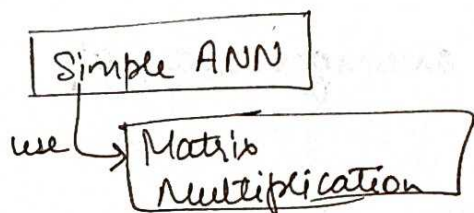 Simple ANN
use
Matrix
Multiplication